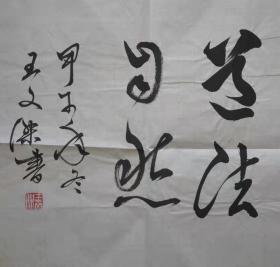 道法
自然
甲午年冬
王文杰书